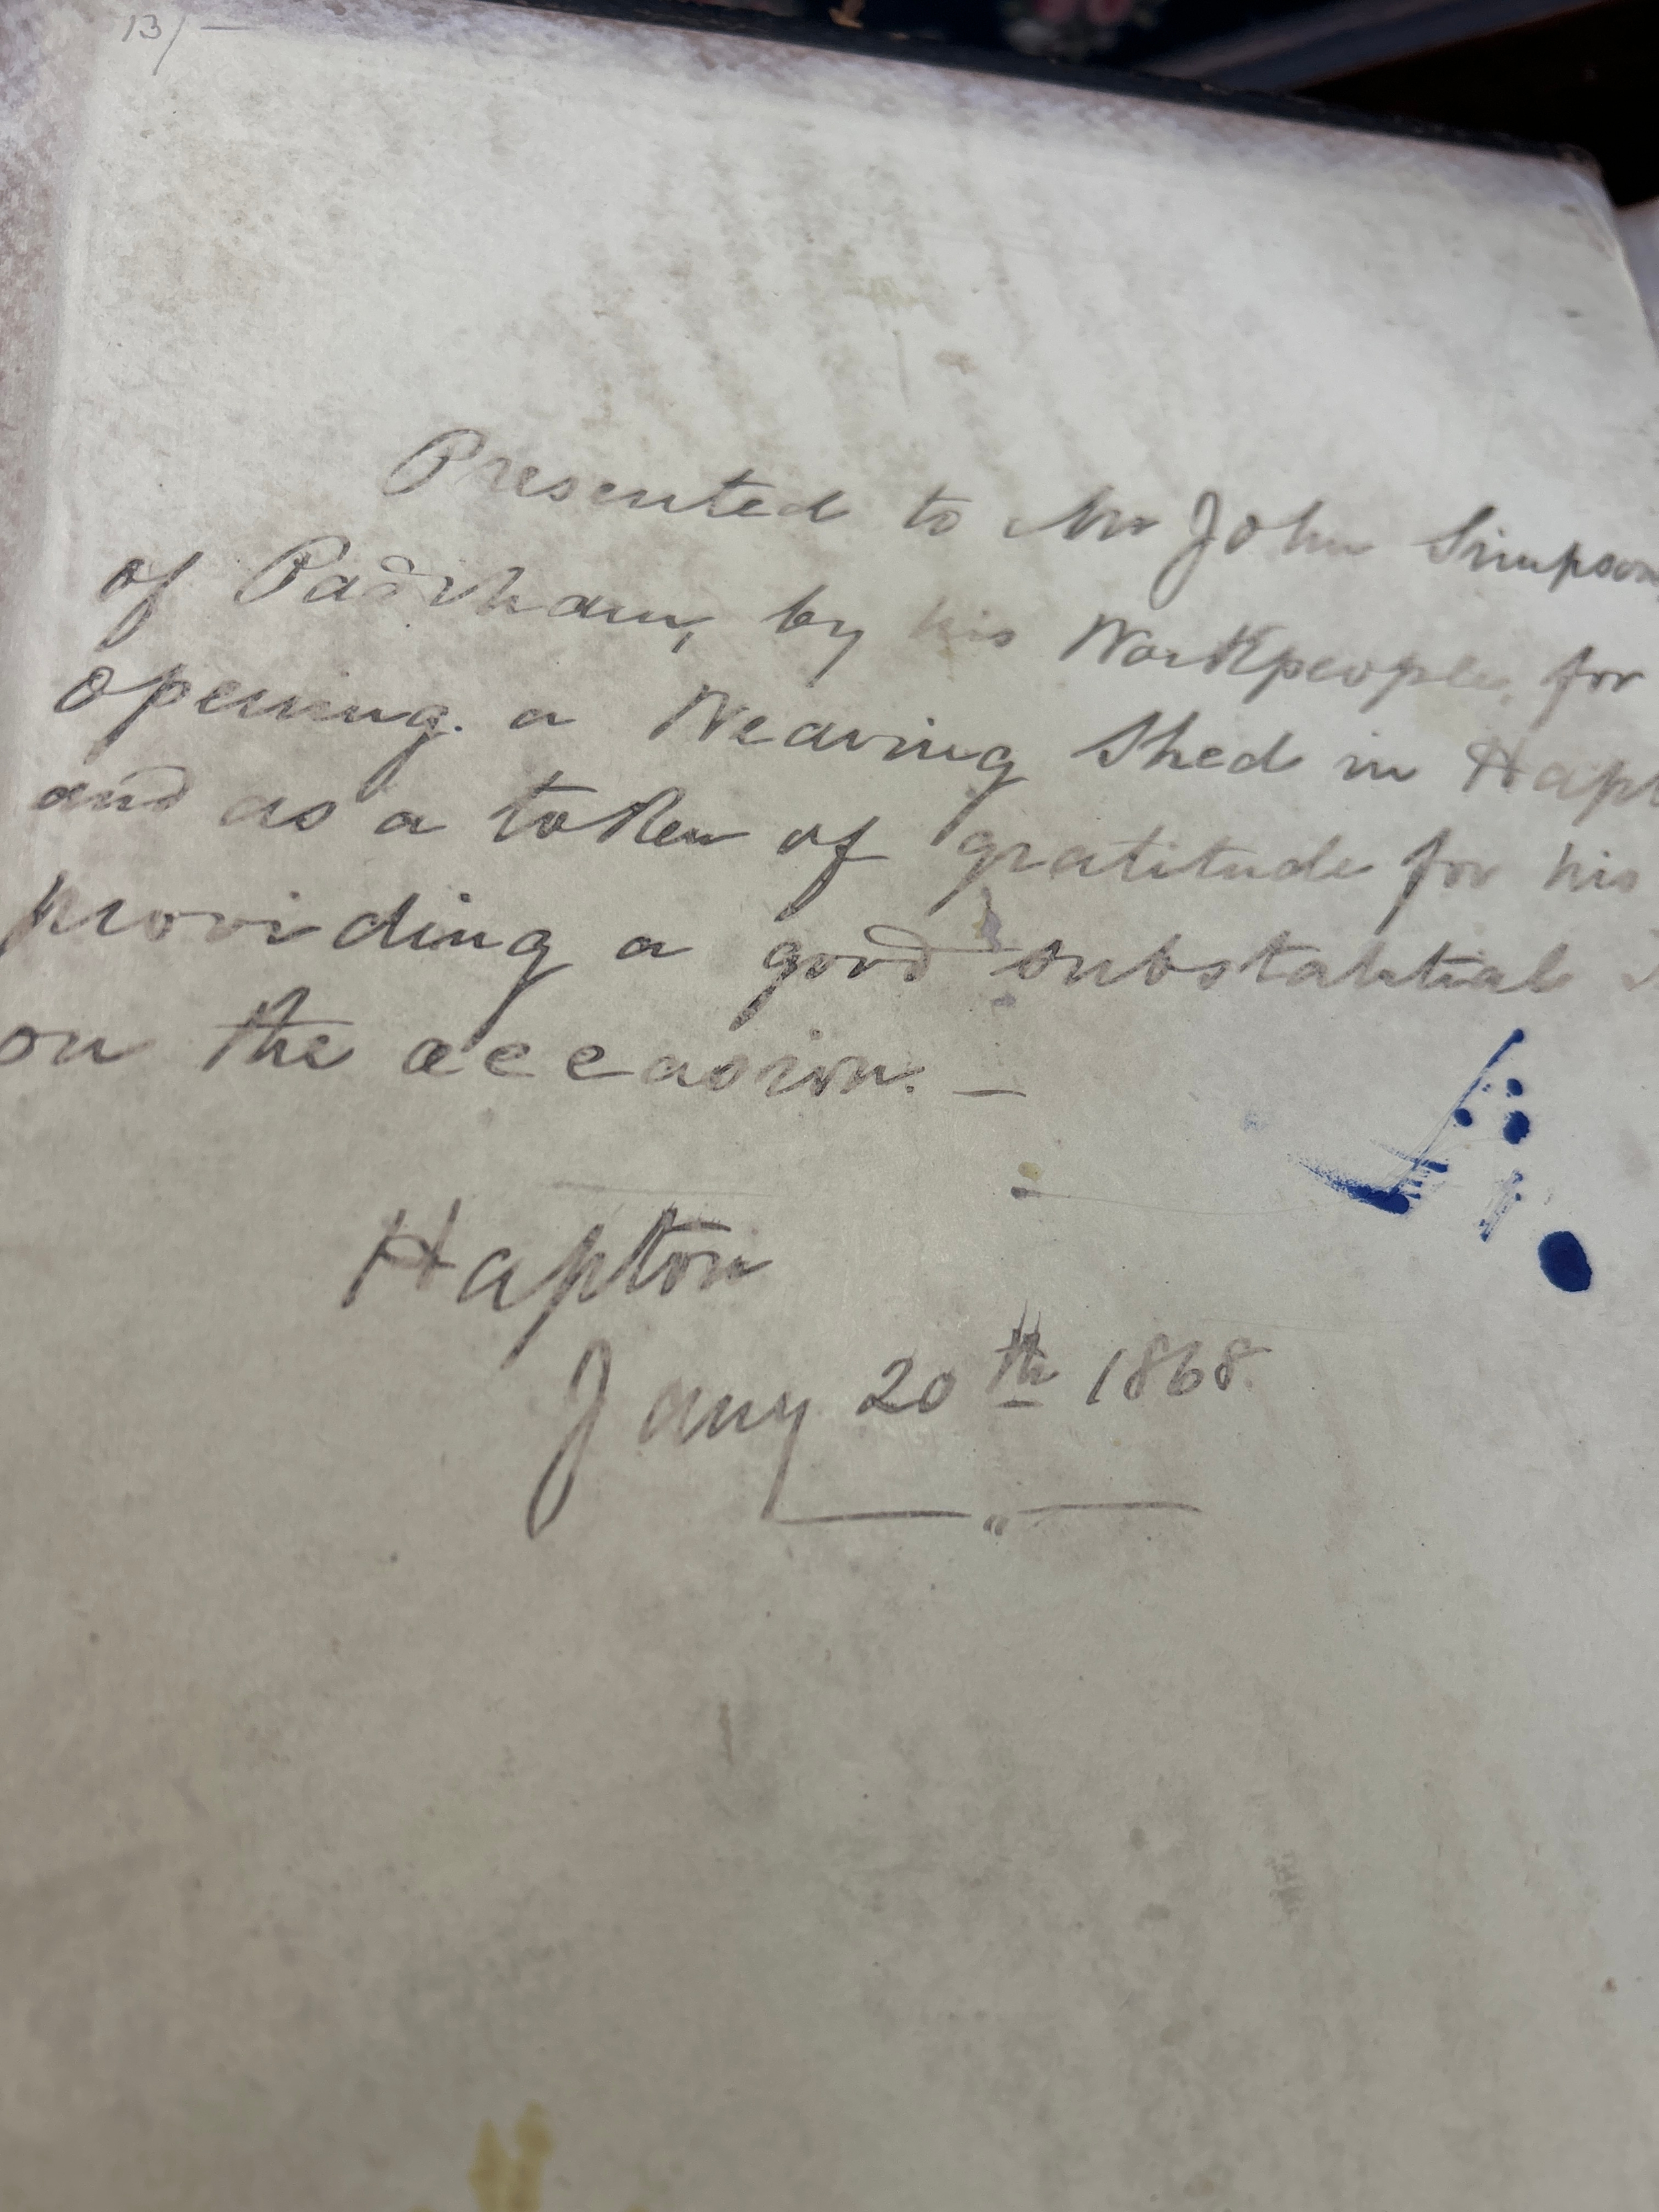 13/-
Presented to Mr John Simpson,
of Padiham, by his Workpeople, for
opening a Weaving Shed in Hapt
and as a token of gratitude for his
providing a good substantial
on the occasion. —
Hapton
Jany 20th 1868.